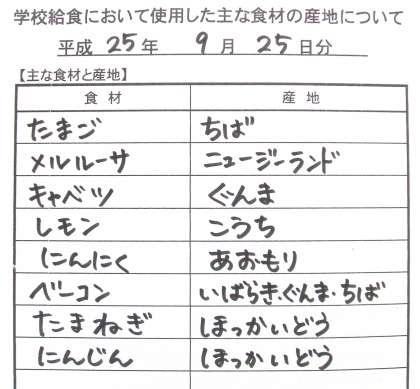 学校給食において使用した主な食材の産地について
平成 25 年 9 月 25 日分
【主な食材と産地】
食材 産地
たまご ちば
メルルーサ ニュージーランド
キャベツ ぐんま
レモン こうち
にんにく あおもり
ベーコン いばらき・ぐんま・ちば
たまねぎ ほっかいどう
にんじん ほっかいどう